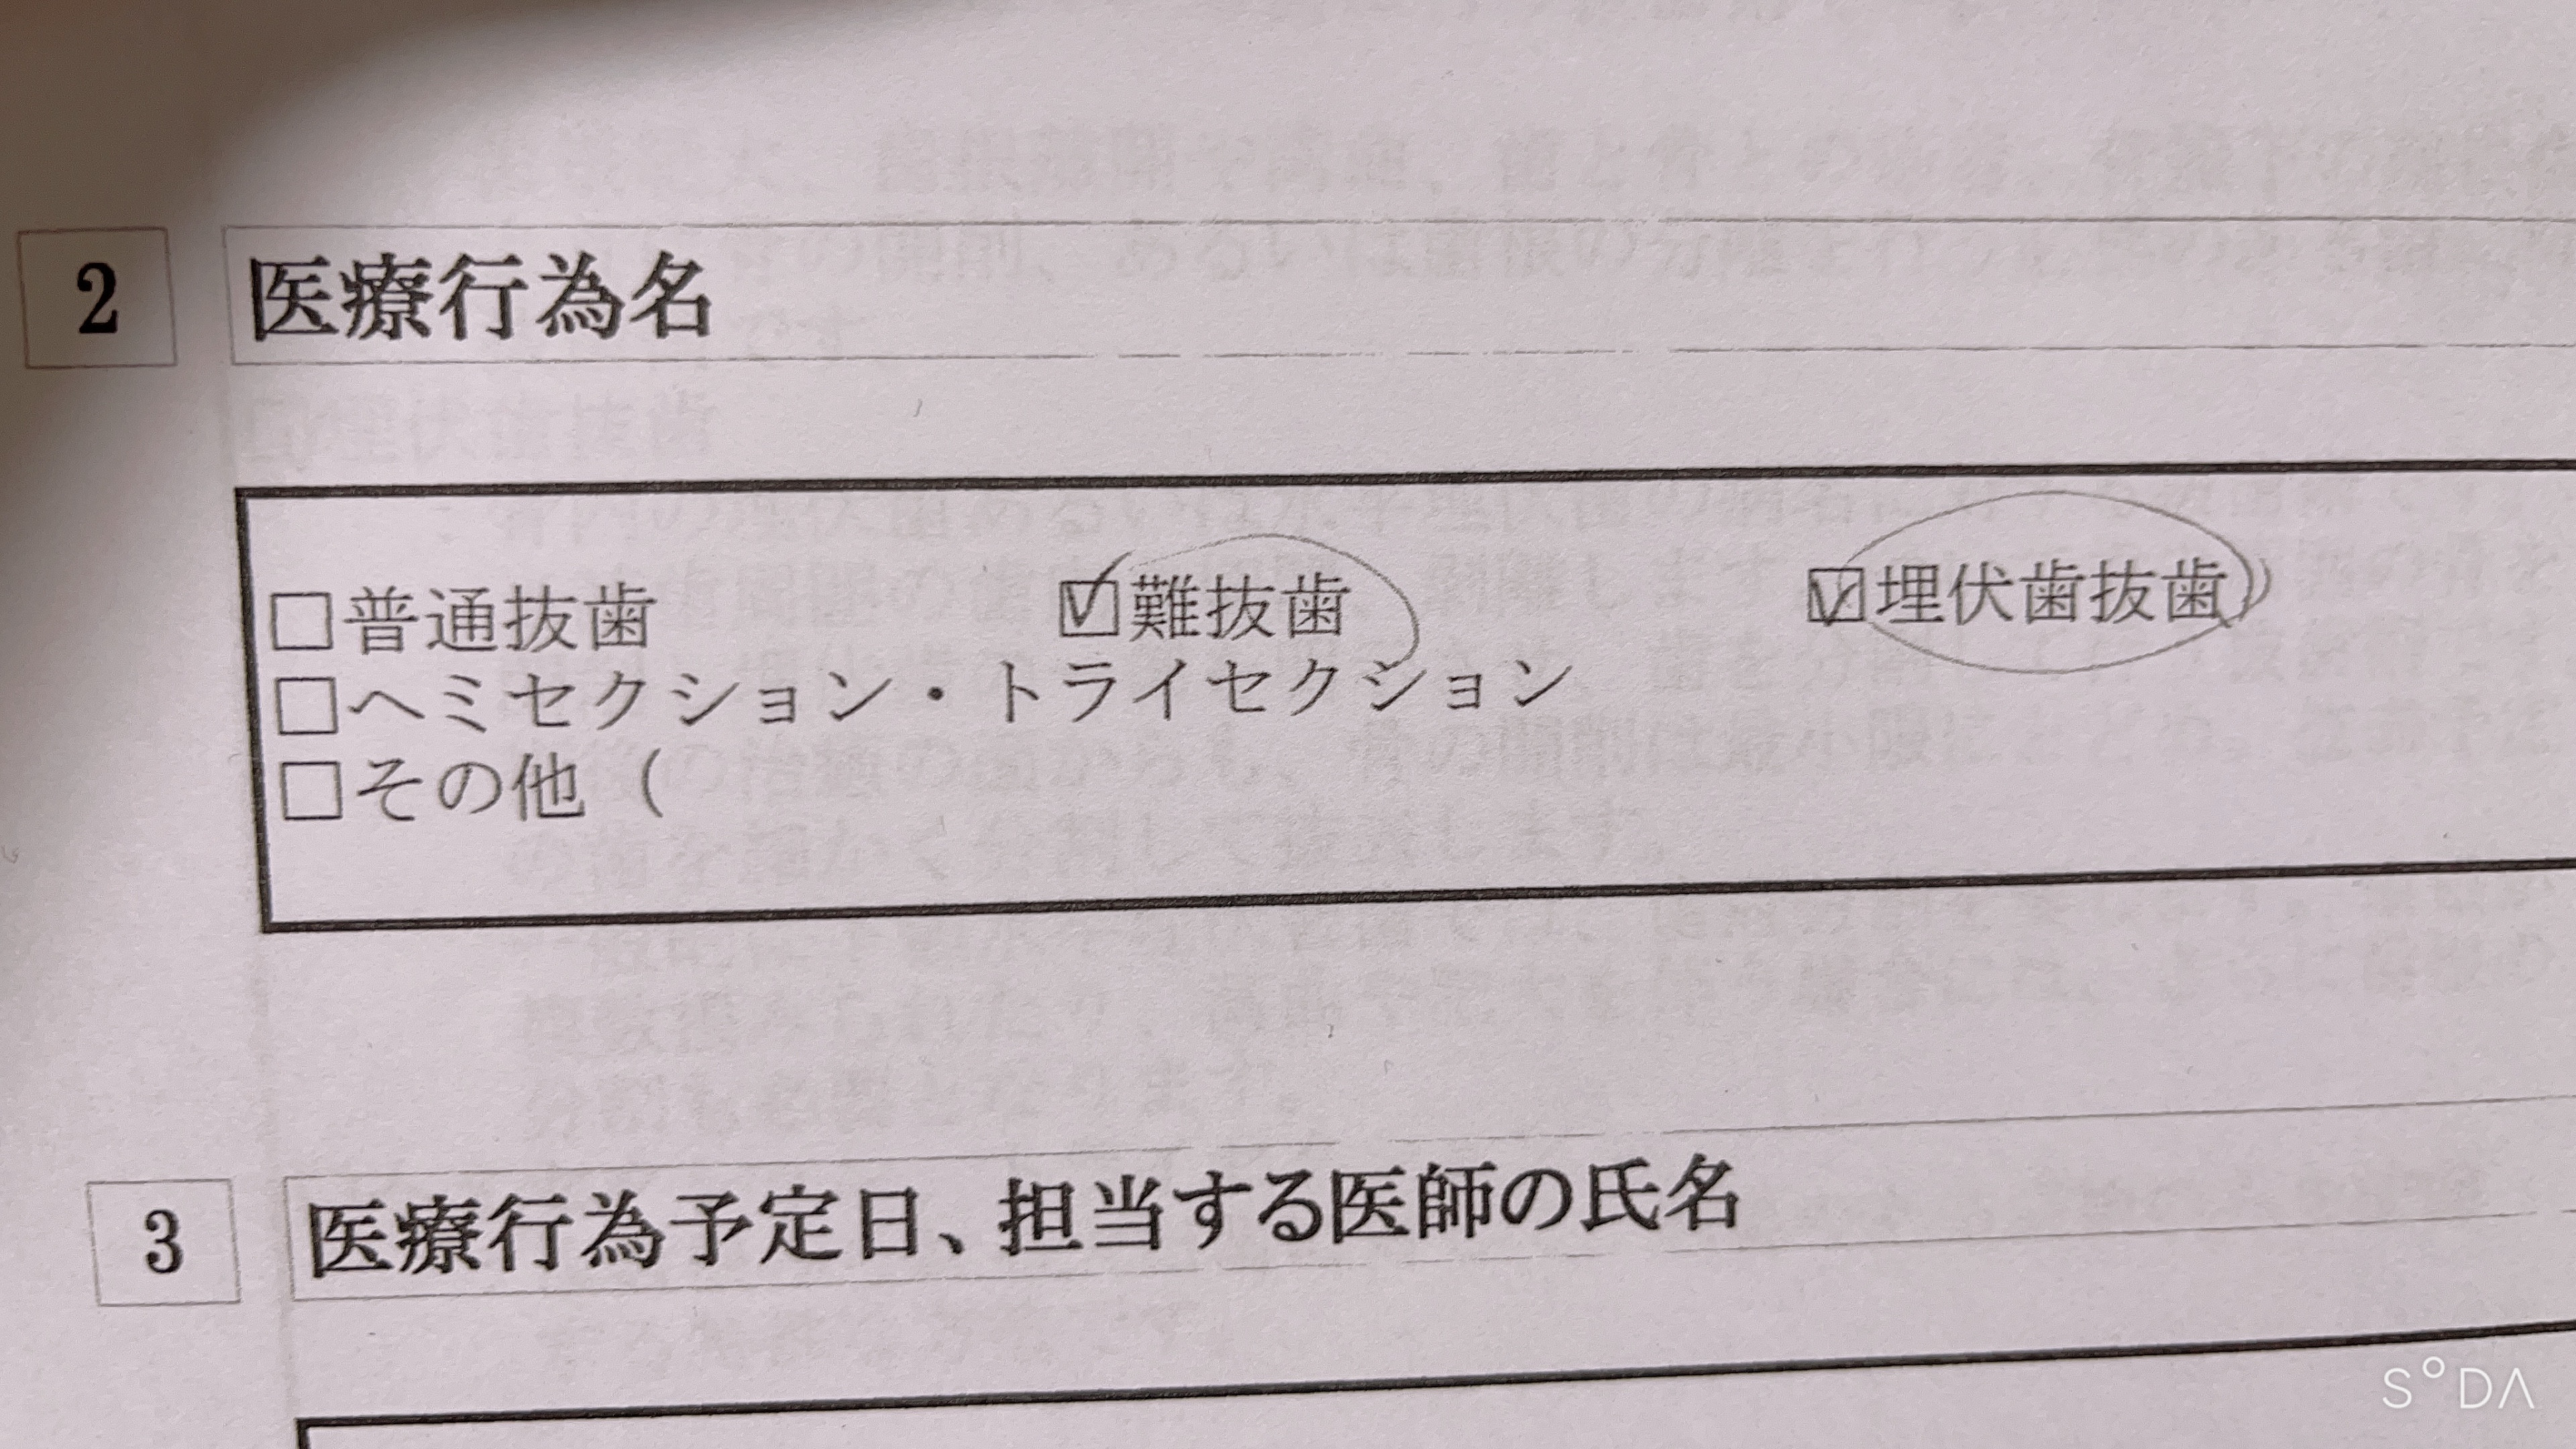 2 医療行為名
□普通抜歯 ☑難抜歯 ☑埋伏歯抜歯
□ヘミセクション・トライセクション
□その他 (
)
3 医療行為予定日、担当する医師の氏名
SODA